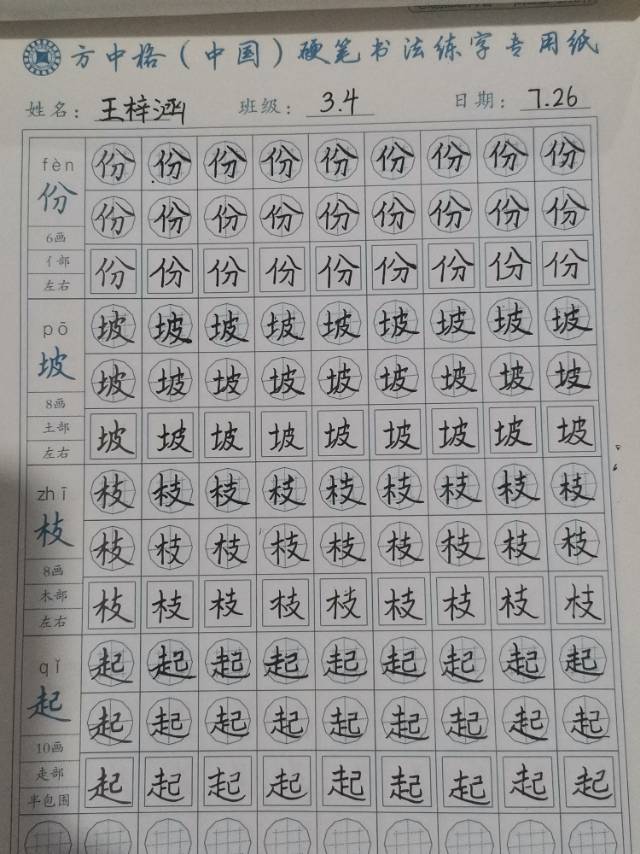 方中格（中国）硬笔书法练字专用纸
姓名：王梓涵 班级：3.4 日期：7.26
fèn 份 份 份 份 份 份 份 份 份
份 份 份 份 份 份 份 份 份 份
6画
亻部 份 份 份 份 份 份 份 份 份
左右
pō 坡 坡 坡 坡 坡 坡 坡 坡 坡
坡 坡 坡 坡 坡 坡 坡 坡 坡 坡
8画
土部 坡 坡 坡 坡 坡 坡 坡 坡 坡
左右
zhī 枝 枝 枝 枝 枝 枝 枝 枝 枝
枝 枝 枝 枝 枝 枝 枝 枝 枝 枝
8画
木部 枝 枝 枝 枝 枝 枝 枝 枝 枝
左右
qǐ 起 起 起 起 起 起 起 起 起
起 起 起 起 起 起 起 起 起 起
10画
走部 起 起 起 起 起 起 起 起 起
半包围